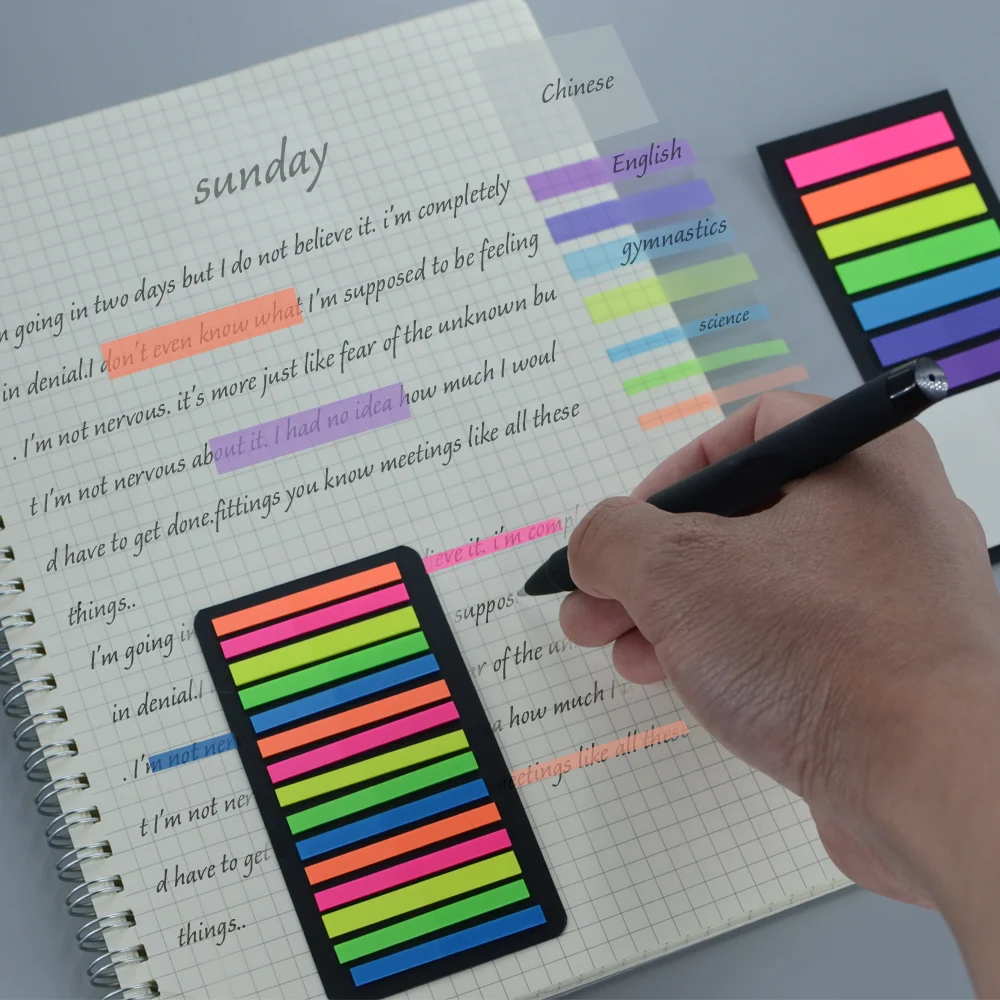 sunday
going in two days but I do not believe it. i'm completely
in denial.I don't even know what I'm supposed to be feeling
. I'm not nervous. it's more just like fear of the unknown bu
t I'm not nervous about it. I had no idea how much I woul
d have to get done.fittings you know meetings like all these
things..
I'm going in
lieve it. i'm compl
in denial.I
suppos
. I'm not ner
r of the un
t I'm not ner
a how much I
d have to get
meetings like all these
things..
Chinese
English
gymnastics
science